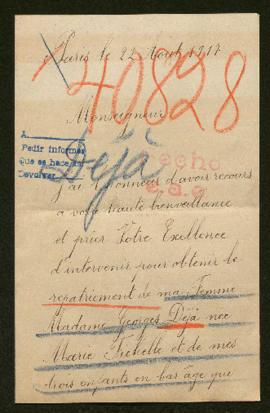 Paris le 22 Août 1917
40828
Monseigneur
A
Pedir informes
que se hace
Devolver
Déjà
j'ai l'honneur d'avoir recours
a votre haute bienveillance
et prier Votre Exellence
d'intervenir pour obtenir le
repatriement de ma Femme
Madame Georges Déjà née
Marie Fichelle et de mes
trois enfants en bas âge que